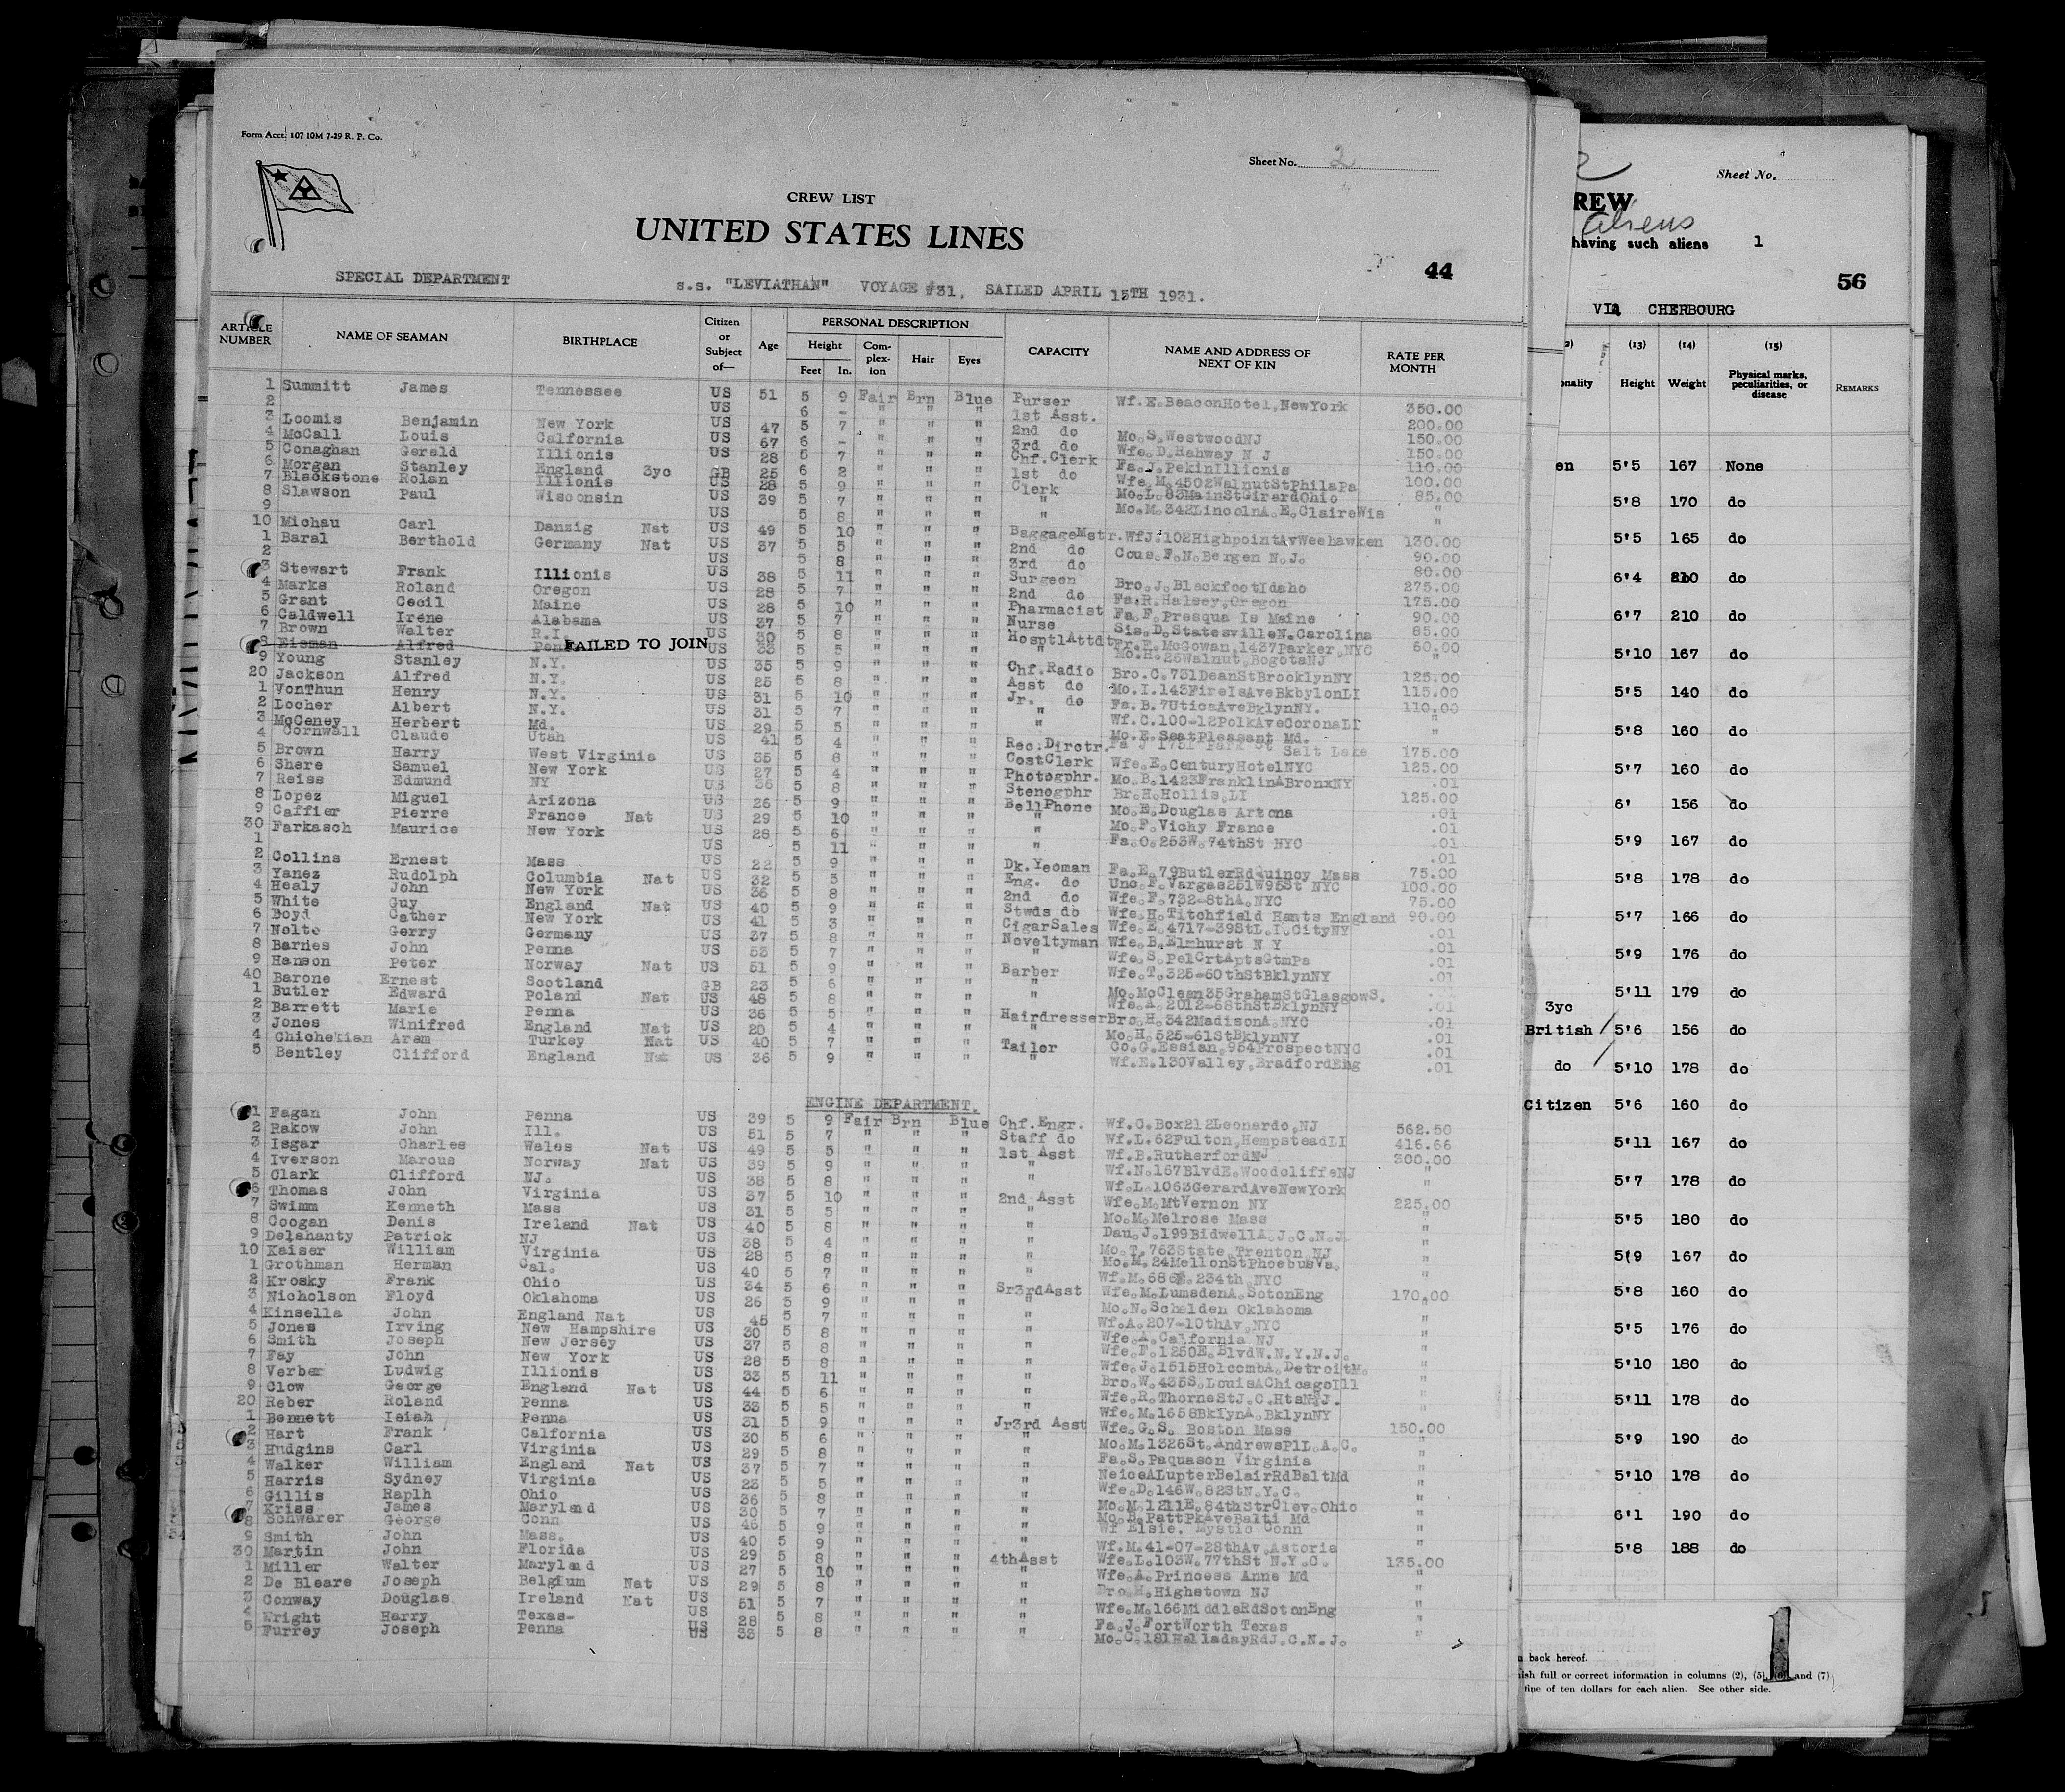 Form Acct. 107 10M 7-29 R. P. Co.
Sheet No. 2
CREW LIST
UNITED STATES LINES
44
SPECIAL DEPARTMENT S.S. "LEVIATHAN" VOYAGE #31, SAILED APRIL 15TH 1931.
ARTICLE NUMBER NAME OF SEAMAN BIRTHPLACE Citizen or Subject of— Age PERSONAL DESCRIPTION Height Feet In. Complexion Hair Eyes CAPACITY NAME AND ADDRESS OF NEXT OF KIN RATE PER MONTH
1 Summitt James Tennessee US 51 5 9 Fair Brn Blue Purser Wf.E.BeaconHotel,NewYork 350.00
2 US 6 - " " " 1st Asst. 200.00
3 Loomis Benjamin New York US 47 5 7 " " " 2nd do Mo.S.WestwoodNJ 150.00
4 McCall Louis Calfornia US 67 6 - " " " 3rd do Wfe.D.Rahway N J 150.00
5 Conaghan Gerald Illionis US 28 5 7 " " " Chf.Clerk Fa.J.PekinIllionis 110.00
6 Morgan Stanley England 3yc GB 25 6 2 " " " 1st do Wfe.M.4502WalnutStPhilaPa 100.00
7 Blackstone Rolan Illionis US 28 5 9 " " " Clerk Mo.L.83MainStGirardOhio 85.00
8 Slawson Paul Wisconsin US 39 5 7 " " " " Mo.M.342LincolnA.E.ClaireWis "
9 US 5 8 " " "
10 Michau Carl Danzig Nat US 49 5 10 " " " BaggageMstr.WfJ.102HighpointAvWeehawken 130.00
1 Baral Berthold Germany Nat US 37 5 5 " " " 2nd do Cous.F.N.Bergen N.J. 90.00
2 US 5 8 " " " 3rd do 80.00
3 Stewart Frank Illionis US 38 5 11 " " " Surgeon Bro.J.BlackfootIdaho 275.00
4 Marks Roland Oregon US 28 5 7 " " " 2nd do Fa.R.Halsey.Oregon 175.00
5 Grant Cecil Maine US 28 5 10 " " " Pharmacist Fa.F.Presqua Is Maine 90.00
6 Caldwell Irene Alabama US 37 5 7 " " " Nurse Sis.D.StatesvilleN.Carolina 85.00
7 Brown Walter R.I. US 30 5 8 " " " HosptlAttdt Fr.E.McGowan,1437Parker,NYC 60.00
8 Eisman Alfred Penn FAILED TO JOIN US 33 5 5 " " " " Mo.H.26Walnut,BogotaNJ "
9 Young Stanley N.Y. US 35 5 9 " " " Chf.Radio Bro.C.731DeanStBrooklynNY 125.00
20 Jackson Alfred N.Y. US 25 5 8 " " " Asst do Mo.I.143FireIsAveBkbylonLI 115.00
1 VonThun Henry N.Y. US 31 5 10 " " " Jr. do Fa.B.7UticaAveBklynNY. 110.00
2 Locher Albert N.Y. US 31 5 7 " " " " Wf.C.100-12PolkAveCoronaLI "
3 McCeney Herbert Md. US 29 5 5 " " " " Mo.E.SeatPleasant Md. "
4 Cornwall Claude Utah US 41 5 4 " " " Rec.Dirctr. Fa J 1751 Park St Salt Lake 175.00
5 Brown Harry West Virginia US 35 5 8 " " " CostClerk Wfe.E.CenturyHotelNYC 125.00
6 Shere Samuel New York US 27 5 4 " " " Photogphr. Mo.B.1423FranklinABronxNY .01
7 Reiss Edmund NY US 36 5 8 " " " Stenogphr Br.H.Hollis,LI 125.00
8 Lopez Miguel Arizona US 26 5 9 " " " BellPhone Mo.E.Douglas Artona .01
9 Caffier Pierre France Nat US 29 5 10 " " " " Mo.F.Vichy France .01
30 Farkasch Maurice New York US 28 5 6 " " " " Fa.O.253W.74thSt NYC .01
1 US 5 11 " " " .01
2 Collins Ernest Mass US 22 5 9 " " " Dk.Yeoman Fa.E.79ButlerRdQuincy Mass 75.00
3 Yanez Rudolph Columbia Nat US 32 5 5 " " " Eng. do Unc.F.Vargas251W95St NYC 100.00
4 Healy John New York US 36 5 8 " " " 2nd do Wfe.F.732-8thA.NYC 75.00
5 White Guy England Nat US 40 5 9 " " " Stwds do Wfe.H.Titchfield Hants England 90.00
6 Boyd Cather New York US 41 5 3 " " " CigarSales Wfe.E.4717-39StL.I.CityNY .01
7 Nolte Gerry Germany US 37 5 8 " " " Noveltyman Wfe.B.Elmhurst N Y .01
8 Barnes John Penna US 53 5 7 " " " " Wfe.S.PelCrtAptsGtmPa .01
9 Hanson Peter Norway Nat US 51 5 9 " " " Barber Wfe.T.325-60thStBklynNY .01
40 Barone Ernest Scotland GB 23 5 6 " " " " Mo.McClean35GrahamStGlasgowS.
1 Butler Edward Poland Nat US 48 5 8 " " " " Wfe.A.2012-68thStBklynNY .01
2 Barrett Marie Penna US 36 5 5 " " " Hairdresser Bro.H.342MadisonA.NYC .01
3 Jones Winifred England Nat US 20 5 4 " " " " Mo.H.525-61StBklynNY .01
4 Chichekian Aram Turkey Nat US 40 5 7 " " " Tailor Co.G.Essian,954ProspectNYC .01
5 Bentley Clifford England Nat US 36 5 9 " " " " Wf.E.130Valley,BradfordEng .01
ENGINE DEPARTMENT.
1 Fagan John Penna US 39 5 9 Fair Brn Blue Chf.Engr. Wf.C.Box212Leonardo,NJ 562.50
2 Rakow John Ill. US 51 5 7 " " " Staff do Wf.L.62Fulton,HempsteadLI 416.66
3 Isgar Charles Wales Nat US 49 5 5 " " " 1st Asst Wf.B.RutherfordNJ 300.00
4 Iverson Marcus Norway Nat US 39 5 9 " " " " Wf.N.167BlvdE.WoodcliffeNJ "
5 Clark Clifford NJ. US 38 5 8 " " " " Wf.L.1063GerardAveNewYork
6 Thomas John Virginia US 37 5 10 " " " 2nd Asst Wfe.M.MtVernon NY 225.00
7 Swimm Kenneth Mass US 31 5 5 " " " " Mo.M.Melrose Mass "
8 Coogan Denis Ireland Nat US 40 5 8 " " " " Dau.J.199BidwellA.J.C.N.J. "
9 Delahanty Patrick NJ US 38 5 4 " " " " Mo.T.753State,Trenton,NJ "
10 Kaiser William Virginia US 28 5 8 " " " " Mo.M.24MellonStPhoebusVa. "
1 Grothman Herman Cal. US 40 5 7 " " " " Wf.M.686E.234th,NYC "
2 Krosky Frank Ohio US 34 5 6 " " " Sr3rdAsst Wfe.M.LumsdenA.SotonEng 170.00
3 Nicholson Floyd Oklahoma US 26 5 9 " " " " Mo.N.Schelden Oklahoma "
4 Kinsella John England Nat US 45 5 7 " " " " Wf.A.207-10thAv.NYC "
5 Jones Irving New Hampshire US 30 5 8 " " " " Wfe.A.California NJ "
6 Smith Joseph New Jersey US 37 5 8 " " " " Wfe.F.1250E.BlvdW.N.Y.N.J. "
7 Fay John New York US 28 5 8 " " " " Wfe.J.1515HolcombA.DetroitM. "
8 Verber Ludwig Illionis US 33 5 11 " " " " Bro.W.435S.LouisAChicagoIll "
9 Clow George England Nat US 44 5 6 " " " " Wfe.R.ThorneStJ.C.HtsNYJ. "
20 Reber Roland Penna US 33 5 5 " " " " Wfe.M.1658BklynA.BklynNY "
1 Bennett Isiah Penna US 31 5 9 " " " Jr3rd Asst Wfe.G.S. Boston Mass 150.00
2 Hart Frank Calfornia US 30 5 6 " " " " Mo.M.1326St.AndrewsPlL.A.C. "
3 Hudgins Carl Virginia US 29 5 8 " " " " Fa.S.Paquason Virginia "
4 Walker William England Nat US 37 5 7 " " " " NeiceALupterBelairRdBaltMd "
5 Harris Sydney Virginia US 23 5 5 " " " " Wfe.D.146W.82StN.Y.C. "
6 Gillis Raplh Ohio US 36 5 8 " " " " Mo.M.1211E.84thStrClev.Ohio "
7 Kriss James Maryland US 30 5 7 " " " " Mo.B.PattPkAveBalti Md "
8 Schwarer George Conn US 46 5 9 " " " " Wf Elsie. Mystic Conn "
9 Smith John Mass. US 40 5 9 " " " " Wf.M.41-07-28thAv.Astoria "
30 Martin John Florida US 29 5 8 " " " 4thAsst Wfe.L.103W.77thSt N.Y.C. 135.00
1 Miller Walter Maryland US 27 5 10 " " " " Wfe.A.Princess Anne Md "
2 De Bleare Joseph Belgium Nat US 29 5 8 " " " " Bro.H.Highstown NJ "
3 Conway Douglas Ireland Nat US 51 5 7 " " " " Wfe.M.166MiddleRdSotonEng "
4 Wright Harry Texas- US 28 5 8 " " " " Fa.J.FortWorth Texas "
5 Furrey Joseph Penna US 33 5 8 " " " " Mo.C.181HalladayRdJ.C.N.J. "
Sheet No.
REW
aliens
having such aliens 1
56
VIA CHERBOURG
(13) (14) (15)
onality Height Weight Physical marks, peculiarities, or disease REMARKS
en 5'5 167 None
5'8 170 do
5'5 165 do
6'4 210 do
6'7 210 do
5'10 167 do
5'5 140 do
5'8 160 do
5'7 160 do
6' 156 do
5'9 167 do
5'8 178 do
5'7 166 do
5'9 176 do
5'11 179 do
3yc
British 5'6 156 do
do 5'10 178 do
Citizen 5'6 160 do
5'11 167 do
5'7 178 do
5'5 180 do
5(9 167 do
5'8 160 do
5'5 176 do
5'10 180 do
5'11 178 do
5'9 190 do
5'10 178 do
6'1 190 do
5'8 188 do
1
back hereof.
ish full or correct information in columns (2), (5), (6), and (7)
fine of ten dollars for each alien. See other side.